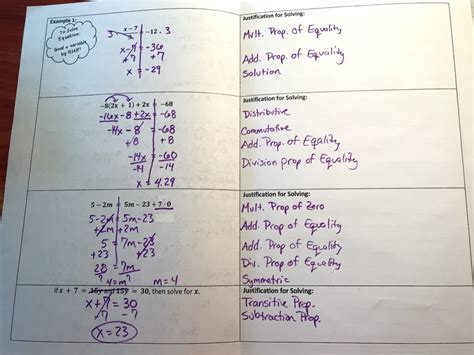 Example 1:
To Solve
Equation
Goal = variable
by itself!
x - 7
3 · = -12 · 3
3
x - 7 = -36
+7 +7
x = -29
Justification for Solving:
Mult. Prop. of Equality
Add. Prop. of Equality
Solution
-8(2x + 1) + 2x = -68
-16x - 8 + 2x = -68
-14x - 8 = -68
+8 +8
-14x = -60
-14 -14
x = 4.29
Justification for Solving:
Distributive
Commutative
Add. Prop. of Eqality
Division prop of Equality
5 - 2m = 5m - 23 + 7 · 0
5 - 2m = 5m - 23
+2m +2m
5 = 7m - 23
+23 +23
28 = 7m
7 7
4 = m m = 4
Justification for Solving:
Mult. Prop of Zero
Add. Prop of Equality
Add. Prop of Equality
Div. Prop of Equality
Symmetric
If x + 7 = 15y and 15y = 30, then solve for x.
x + 7 = 30
-7 -7
x = 23
Justification for Solving:
Transitive Prop.
Subtraction Prop.